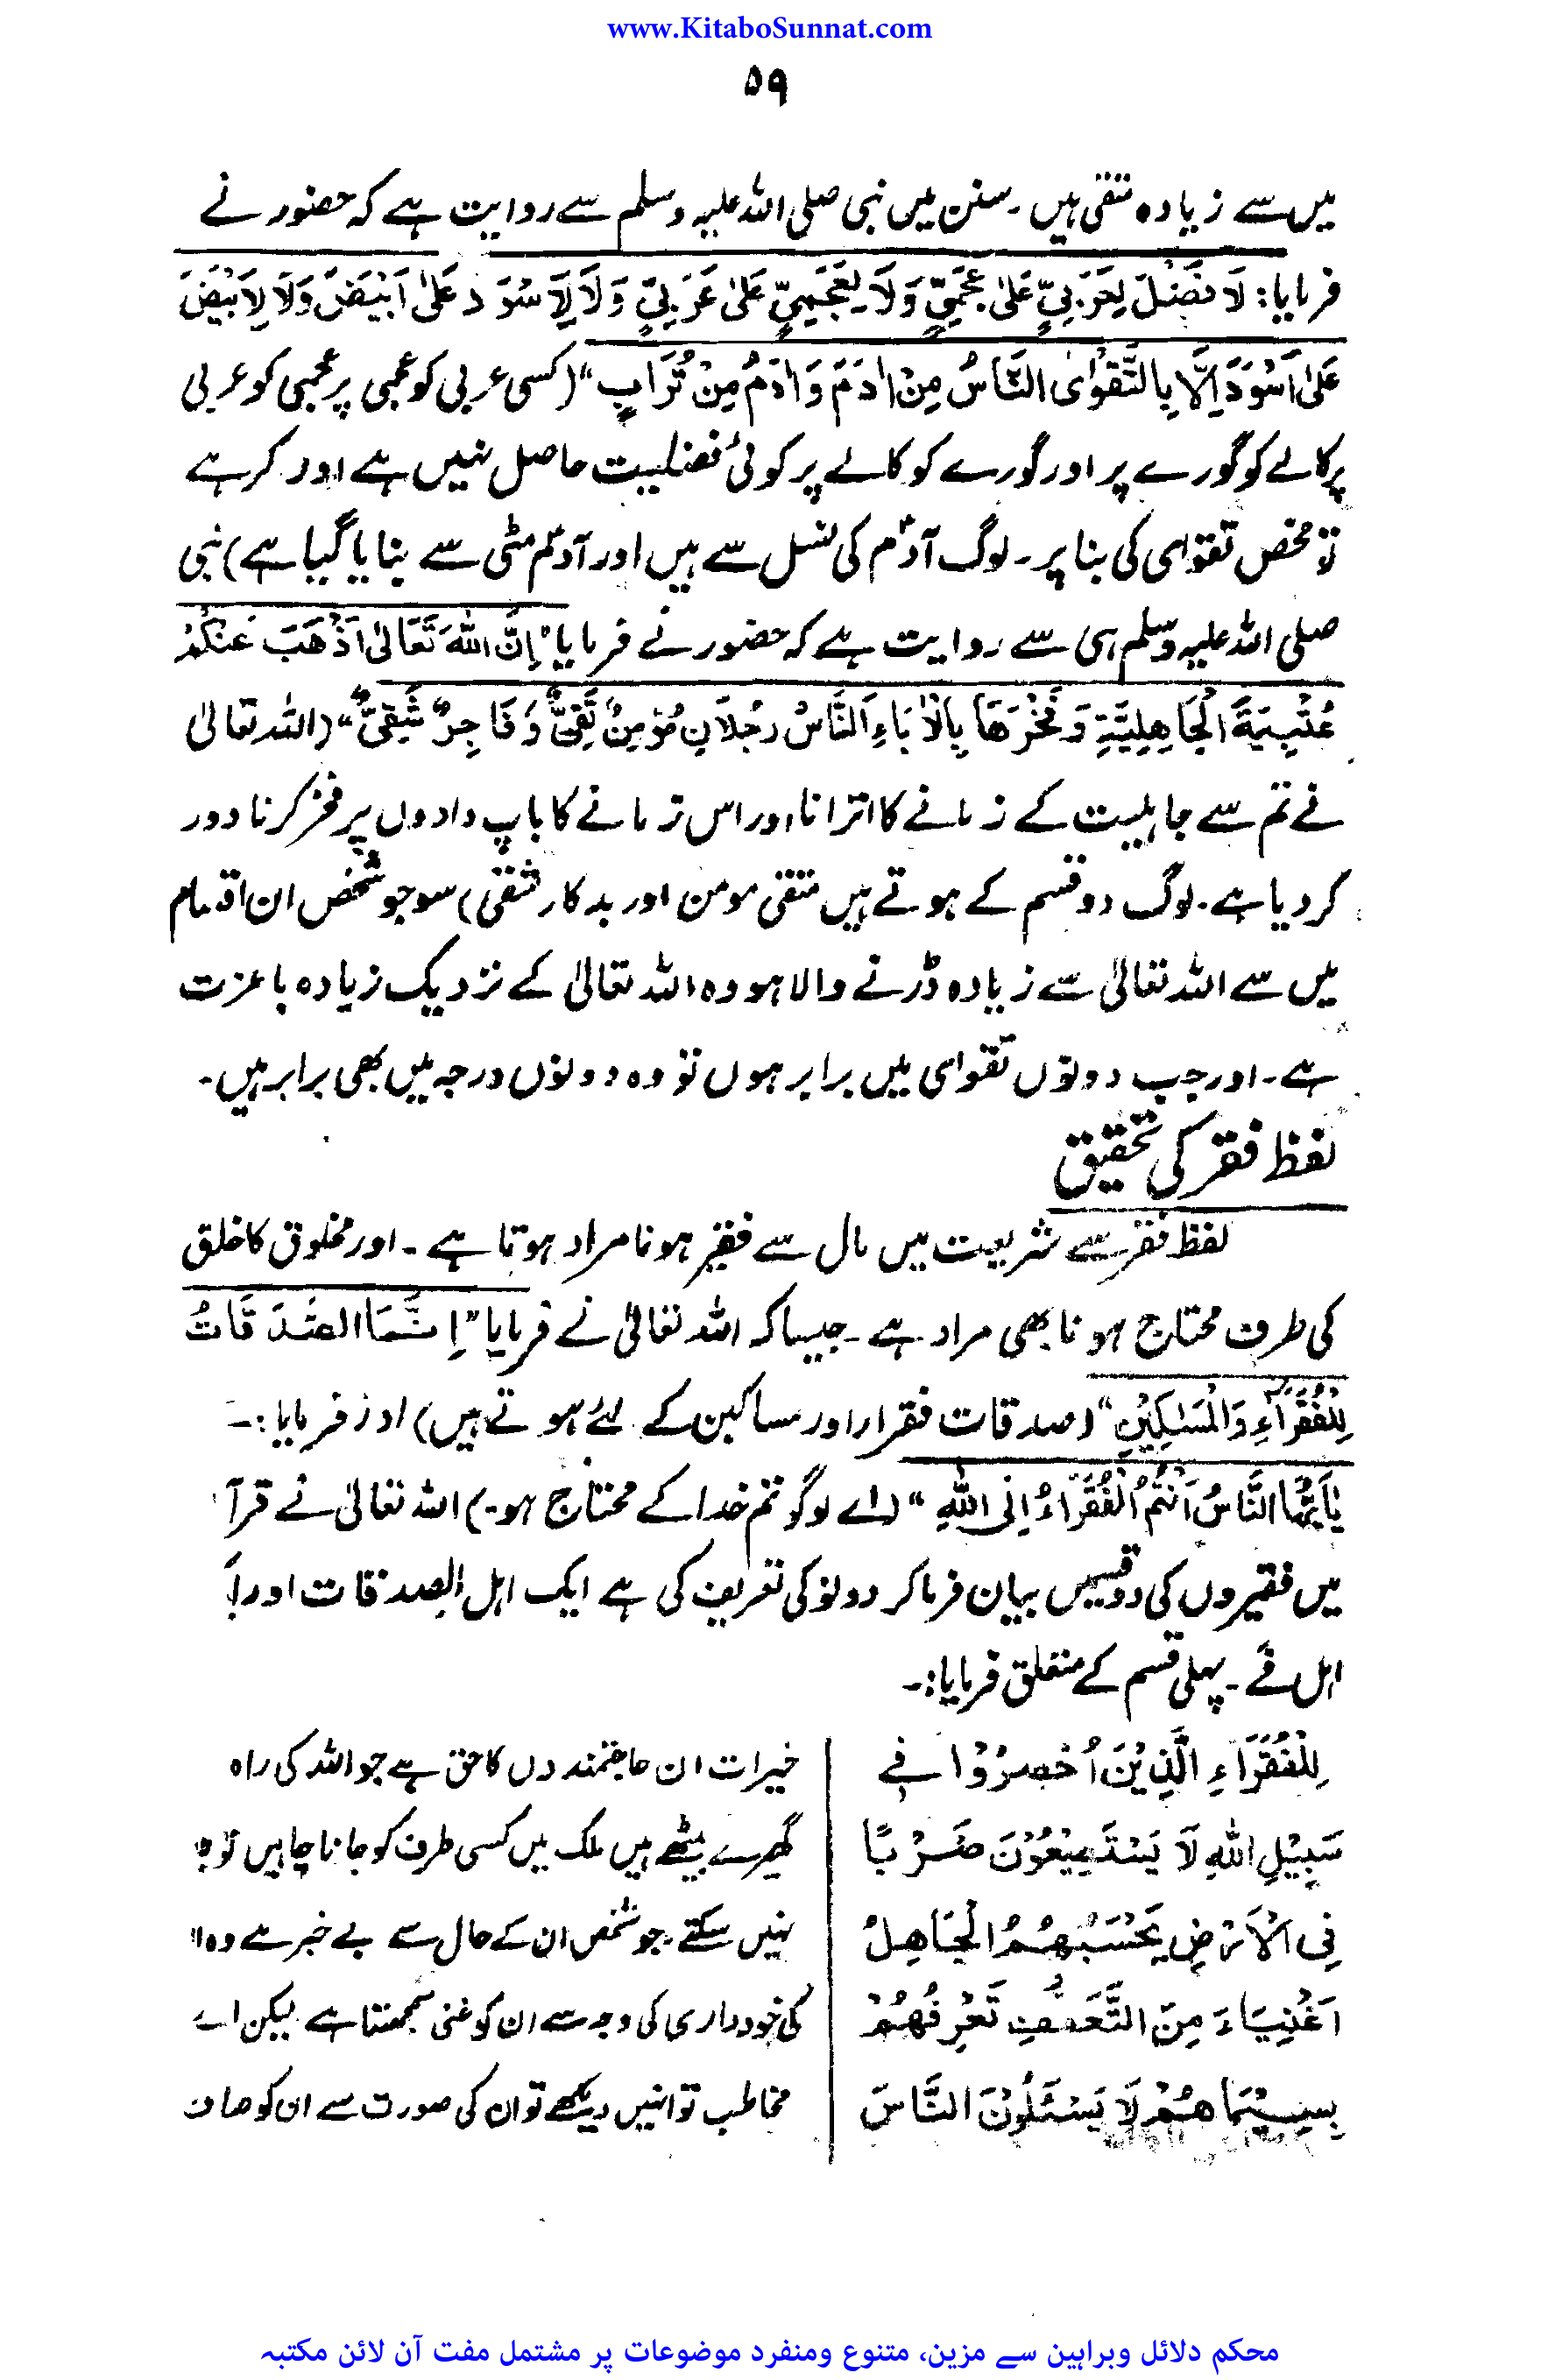 www.KitaboSunnat.com
۵۹
میں سے زیادہ متقی ہیں۔ سنن میں نبی صلی اللہ علیہ وسلم سے روایت ہے کہ حضور نے
فرمایا: لَا فَضْلَ لِعَرَبِيٍّ عَلٰى عَجَمِيٍّ وَلَا لِعَجَمِيٍّ عَلٰى عَرَبِيٍّ وَلَا لِاَسْوَدَ عَلٰى اَبْيَضَ وَلَا لِاَبْيَضَ
عَلٰى اَسْوَدَ اِلَّا بِالتَّقْوٰى النَّاسُ مِنْ اٰدَمَ وَ اٰدَمُ مِنْ تُرَابٍ“ (کسی عربی کو عجمی پر عجمی کو عربی
پر کالے کو گورے پر اور گورے کو کالے پر کوئی فضلیت حاصل نہیں ہے اور کر ہے
تو محض تقوای کی بنا پر۔ لوگ آدمؑ کی نسل سے ہیں اور آدمؑ مٹی سے بنایا گیا ہے) نبی
صلی اللہ علیہ وسلم ہی سے روایت ہے کہ حضور نے فرمایا ”اِنَّ اللّٰهَ تَعَالٰى اَذْهَبَ عَنْكُمْ
عُبِّيَةَ الْجَاهِلِيَّةِ وَفَخْرَهَا بِالْاٰبَاءِ اَلنَّاسُ رَجُلَانِ مُؤْمِنٌ تَقِيٌّ وَ فَاجِرٌ شَقِيٌّ“ (اللہ تعالیٰ
نے تم سے جاہلیت کے زمانے کا اترانا اور اس زمانے کا باپ دادوں پر فخر کرنا دور
کر دیا ہے۔ لوگ دو قسم کے ہوتے ہیں متقی مومن اور بدکار شقی) سو جو شخص ان اقسام
میں سے اللہ تعالیٰ سے زیادہ ڈرنے والا ہو وہ اللہ تعالیٰ کے نزدیک زیادہ با عزت
ہے۔ اور جب دونوں تقوای میں برابر ہوں تو وہ دونوں درجہ میں بھی برابر ہیں۔
لفظ فقر کی تحقیق
لفظ فقر سے شریعت میں مال سے فقیر ہونا مراد ہوتا ہے۔ اور مخلوق کا خلق
کی طرف محتاج ہونا بھی مراد ہے۔ جیسا کہ اللہ تعالیٰ نے فرمایا ”اِنَّمَا الصَّدَقَاتُ
لِلْفُقَرَآءِ وَالْمَسٰكِيْنِ“ (صدقات فقراء اور مساکین کے لئے ہوتے ہیں) اور فرمایا:۔
يٰاَيُّهَا النَّاسُ اَنْتُمُ الْفُقَرَاءُ اِلَى اللّٰهِ “ (اے لوگو تم خدا کے محتاج ہو۔) اللہ تعالیٰ نے قرآ
میں فقیروں کی دو قسمیں بیان فرما کر دونو کی تعریف کی ہے ایک اہل الصدقات اور ا
اہل فے۔ پہلی قسم کے متعلق فرمایا:۔
لِلْفُقَرَآءِ الَّذِيْنَ اُحْصِرُوْا فِے
سَبِيْلِ اللّٰهِ لَا يَسْتَطِيْعُوْنَ ضَرْبًا
فِى الْاَرْضِ يَحْسَبُهُمُ الْجَاهِلُ
اَغْنِيَاءَ مِنَ التَّعَفُّفِ تَعْرِفُهُمْ
بِسِيْمَاهُمْ لَا يَسْئَلُوْنَ النَّاسَ
خیرات ان حاجتمندوں کا حق ہے جو اللہ کی راہ
گھرے بیٹھے ہیں ملک میں کسی طرف کو جانا چاہیں تو
نہیں سکتے۔ جو شخص ان کے حال سے بے خبر ہے وہ ا
کی خود داری کی وجہ سے ان کو غنی سمجھتا ہے لیکن اے
مخاطب تو انہیں دیکھے تو ان کی صورت سے ان کو صاف
محکم دلائل وبراہین سے مزین، متنوع ومنفرد موضوعات پر مشتمل مفت آن لائن مکتبہ